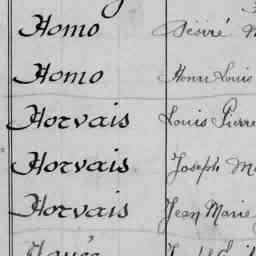 Homo Désiré
Homo Henri Louis
Horvais Louis Pierre
Horvais Joseph
Horvais Jean Marie